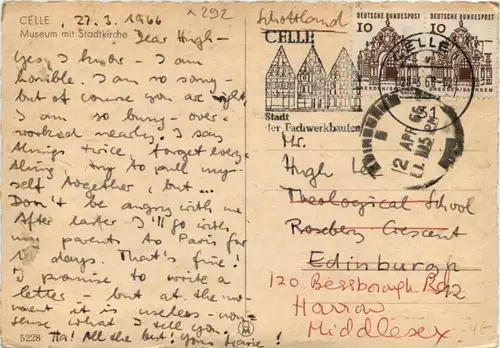 CELLE
Museum mit Stadtkirche
27. 3. 1966
A292
Dear Hugh -
Yes, I know - I am
horrible. I am so sorry -
but of course you are right
I am so busy - over-
worked nearly. I say
things twice, forget every-
thing, try to pull my-
self together, but ...
Don't be angry with me
After Easter I'll go with
my parents to Paris for
days. That's fine!
I promise to write a
letter - but at the mo-
ment it is useless - non-
sense what I tell you.
Ha! All the best! Yours
5228
Schottland
CELLE
Stadt
der Fachwerkbauten
DEUTSCHE BUNDESPOST
10
DRESDEN/SACHSEN
DEUTSCHE BUNDESPOST
10
DRESDEN/SACHSEN
CELLE
31
EDINBURGH
12 APR 66
11.45 PM
Mr.
Hugh Lee
Theological School
Rosebery Crescent
Edinburgh 12
120. Bessborough Rd
Harrow
Middlesex